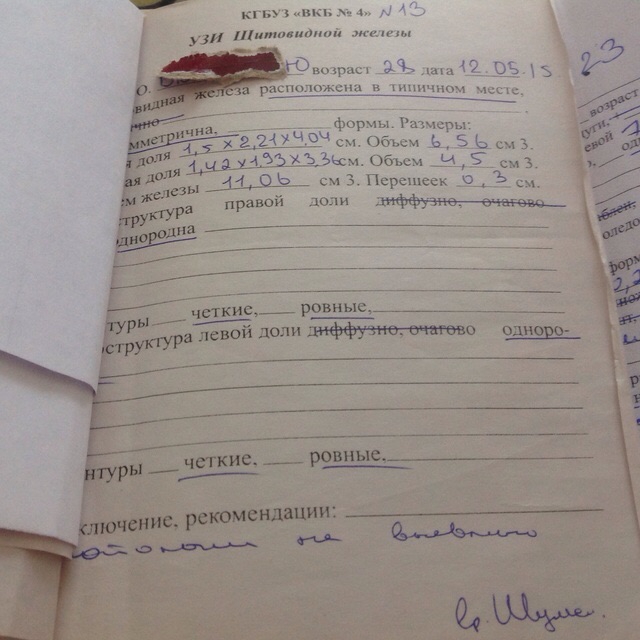 КГБУЗ «ВКБ № 4» N 13
УЗИ Щитовидной железы
О. Ю возраст 28 дата 12.05.15
овидная железа расположена в типичном месте,
чно
мметрична, формы. Размеры:
я доля 1,5 х 2,21х4,04 см. Объем 6,56 см 3.
ая доля 1,42х1,93х3,36 см. Объем 4,5 см 3.
ем железы 11,06 см 3. Перешеек 0,3 см.
структура правой доли диффузно, очагово
однородна
нтуры четкие, ровные,
оструктура левой доли диффузно, очагово одноро-
нтуры четкие, ровные,
ключение, рекомендации:
не выявлено
вр.
23
возраст